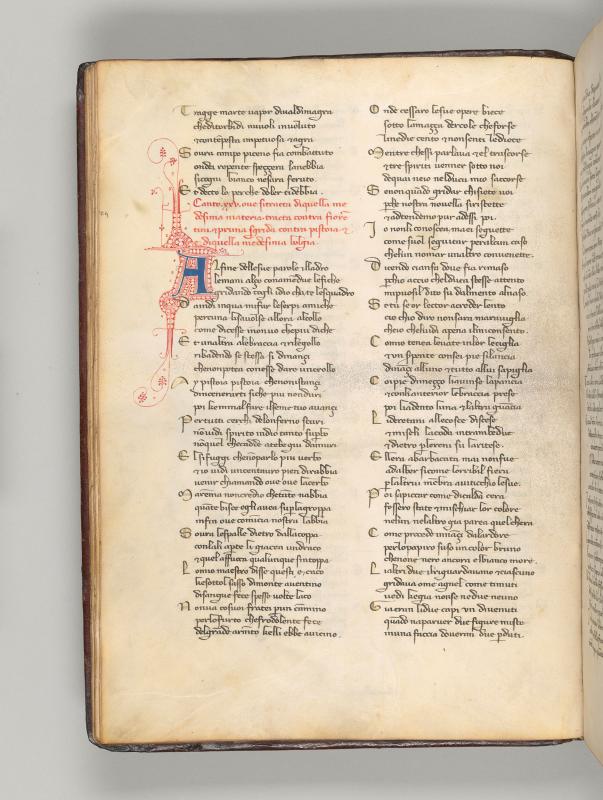 Tragge marte uapor diualdimagra
cheditorbidi nuuoli inuoluto
& contempesta impetuosa & agra
Soura campo piceno fia combattuto
ondei repente speççera lanebbia
siccogni bianco nesara feruto.
Et decto lo perche doler tidebbia.
Canto .xxv. oue sitracta diquella me
desima materia. tracta contra fioren
tini. & prima sgrida contra pistoia &
diquella medesima bolgia.
Alfine dellesue parole illadro
lemani alço conamedue lefiche
gridando togli dio chate lesquadro
Da indi inqua mifur leserpi amiche
percuna lisauolse allora alcollo
come dicesse non uo chepiu diche
Et unaltra alebraccia & rilegollo
ribadendo se stessa si dinançi
chenonpotea conesse dare uncrollo
Ay pistoia pistoia chenonistançi
dincenerarti siche piu nonduri
poi kenmalfare ilseme tuo auançi
Per tutti cerchi delonferno scuri
nonuidi spirito indio tanto superbo
nonquel checadde atebe giu damuri
El sifuggi chenonparlo piu uerbo
& io uidi uncentauro pien dirabbia
uenir chiamando oue oue lacerbo
Maremma noncredio chetante nabbia
quante bisce egli auea super lagroppa
infin oue comincia nostra labbia
Soura lespalle dietro dallacoppa
conlali aperte li giacea undraco
& quel affuoca qualunque sintoppa
Lo mio maestro disse questi e caco
kesottol sasso dimonte auentino
disangue fece spesso uolte laco
Non ua cosuoi fratei pun cammino
perlofurto chefrodolente fece
delgrande armento kelli ebbe auicino.
Onde cessaro lesue opere biece
sotto lamazza dercole cheforse
linediè cento & nonsenti lediece
Mentre chessi parlaua & el trascorse
& tre spiriti uenner sotto noi
dequai neio nelduca mio saccorse
Se nonquando gridar chisiete uoi
perche nostra nouella siristette
& adtendemo pur adessi poi.
Io nonli conoscea maei seguette
come suol seguitar peralcun caso
chelun nomar unaltro conuenette.
Dicendo cianfa doue fia rimaso
perchio accio chelduca stesse attento
mipuosil dito su dalmento alnaso.
Se tu se or lector acreder lento
cio chio diro nonsara marauiglia
cheio cheluidi apena ilmiconsento.
Como tenea leuate inlor leciglia
& un serpente consei pie silancia
dinançi alluno & tutto allui sapiglia
Coipie dimezzo liauinse lapancia
& conlianterior lebraccia prese
poi liadento luna & laltra guancia
Lidretani allecosce distese
& miseli lacoda intramendue
& dietro perloren su laritese.
Ellera abarbacata mai nonfue
adalbor sicome lorribil fiera
peraltrui membra auiticchio lesue.
Poi sapiccar come dicalda cera
fossero state & mischiar lor colore
nelun nelaltro gia parea quelchera
Come procede innançi dalardore
perlopapiro suso un color bruno
chenone nero ancora elbianco more.
Laltri due ilriguardauano & ciascuno
gridaua ome agnel come timuti
uedi kegia nonse nedue neuno
Gia eran ladue capi un diuenuti
quando naparuer due figure miste
inuna faccia douerano due perduti.